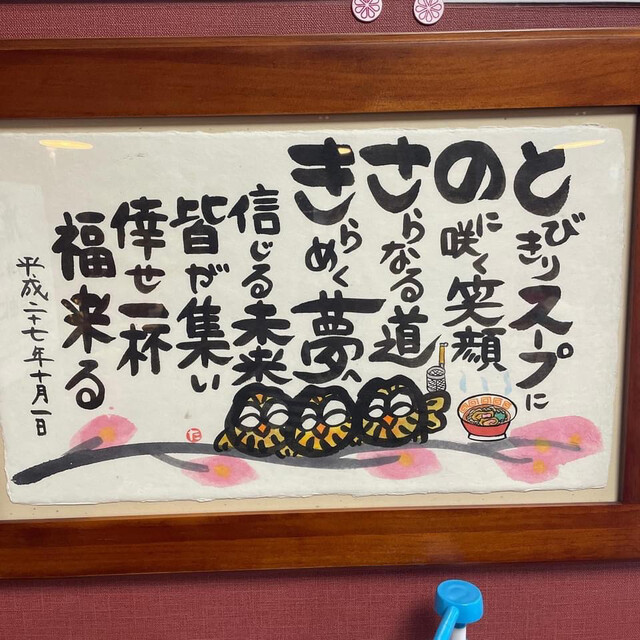 とびきりスープに
のに咲く笑顔
さらなる道
きらめく夢へ
信じる未来
皆が集い
倖せ一杯
福来る
平成二十七年十月一日